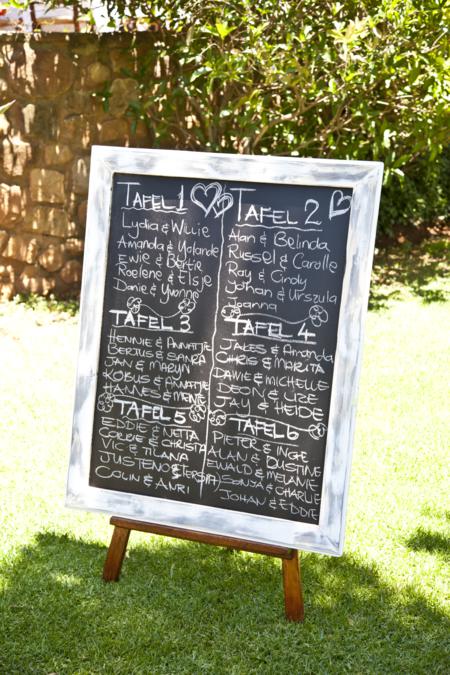 TAFEL 1
Lydia & Willie
Amanda & Yolande
Ewie & Bertie
Roelene & Elsje
Danie & Yvonne
TAFEL 2
Alan & Belinda
Russel & Carolle
Ray & Cindy
Johan & Urszula
Joanna
TAFEL 3
HENNIE & ANNATJIE
BERTUS & SANRA
JAN & MARYN
KOBUS & ANNATJIE
HANNES &
TAFEL 4
JAKES & AMANDA
CHRIS & MARITA
DAWIE & MICHELLE
DEON & LIZE
JAY & HEIDE
TAFEL 5
EDDIE & NETTA
& CHRISTA
VIC & TILANA
JUSTENO &
COLIN & ANRI
TAFEL 6
PIETER & INGE
ALAN & DUSTINE
EWALD & MELANIE
SONJA & CHARLIE
JOHAN & EDDIE